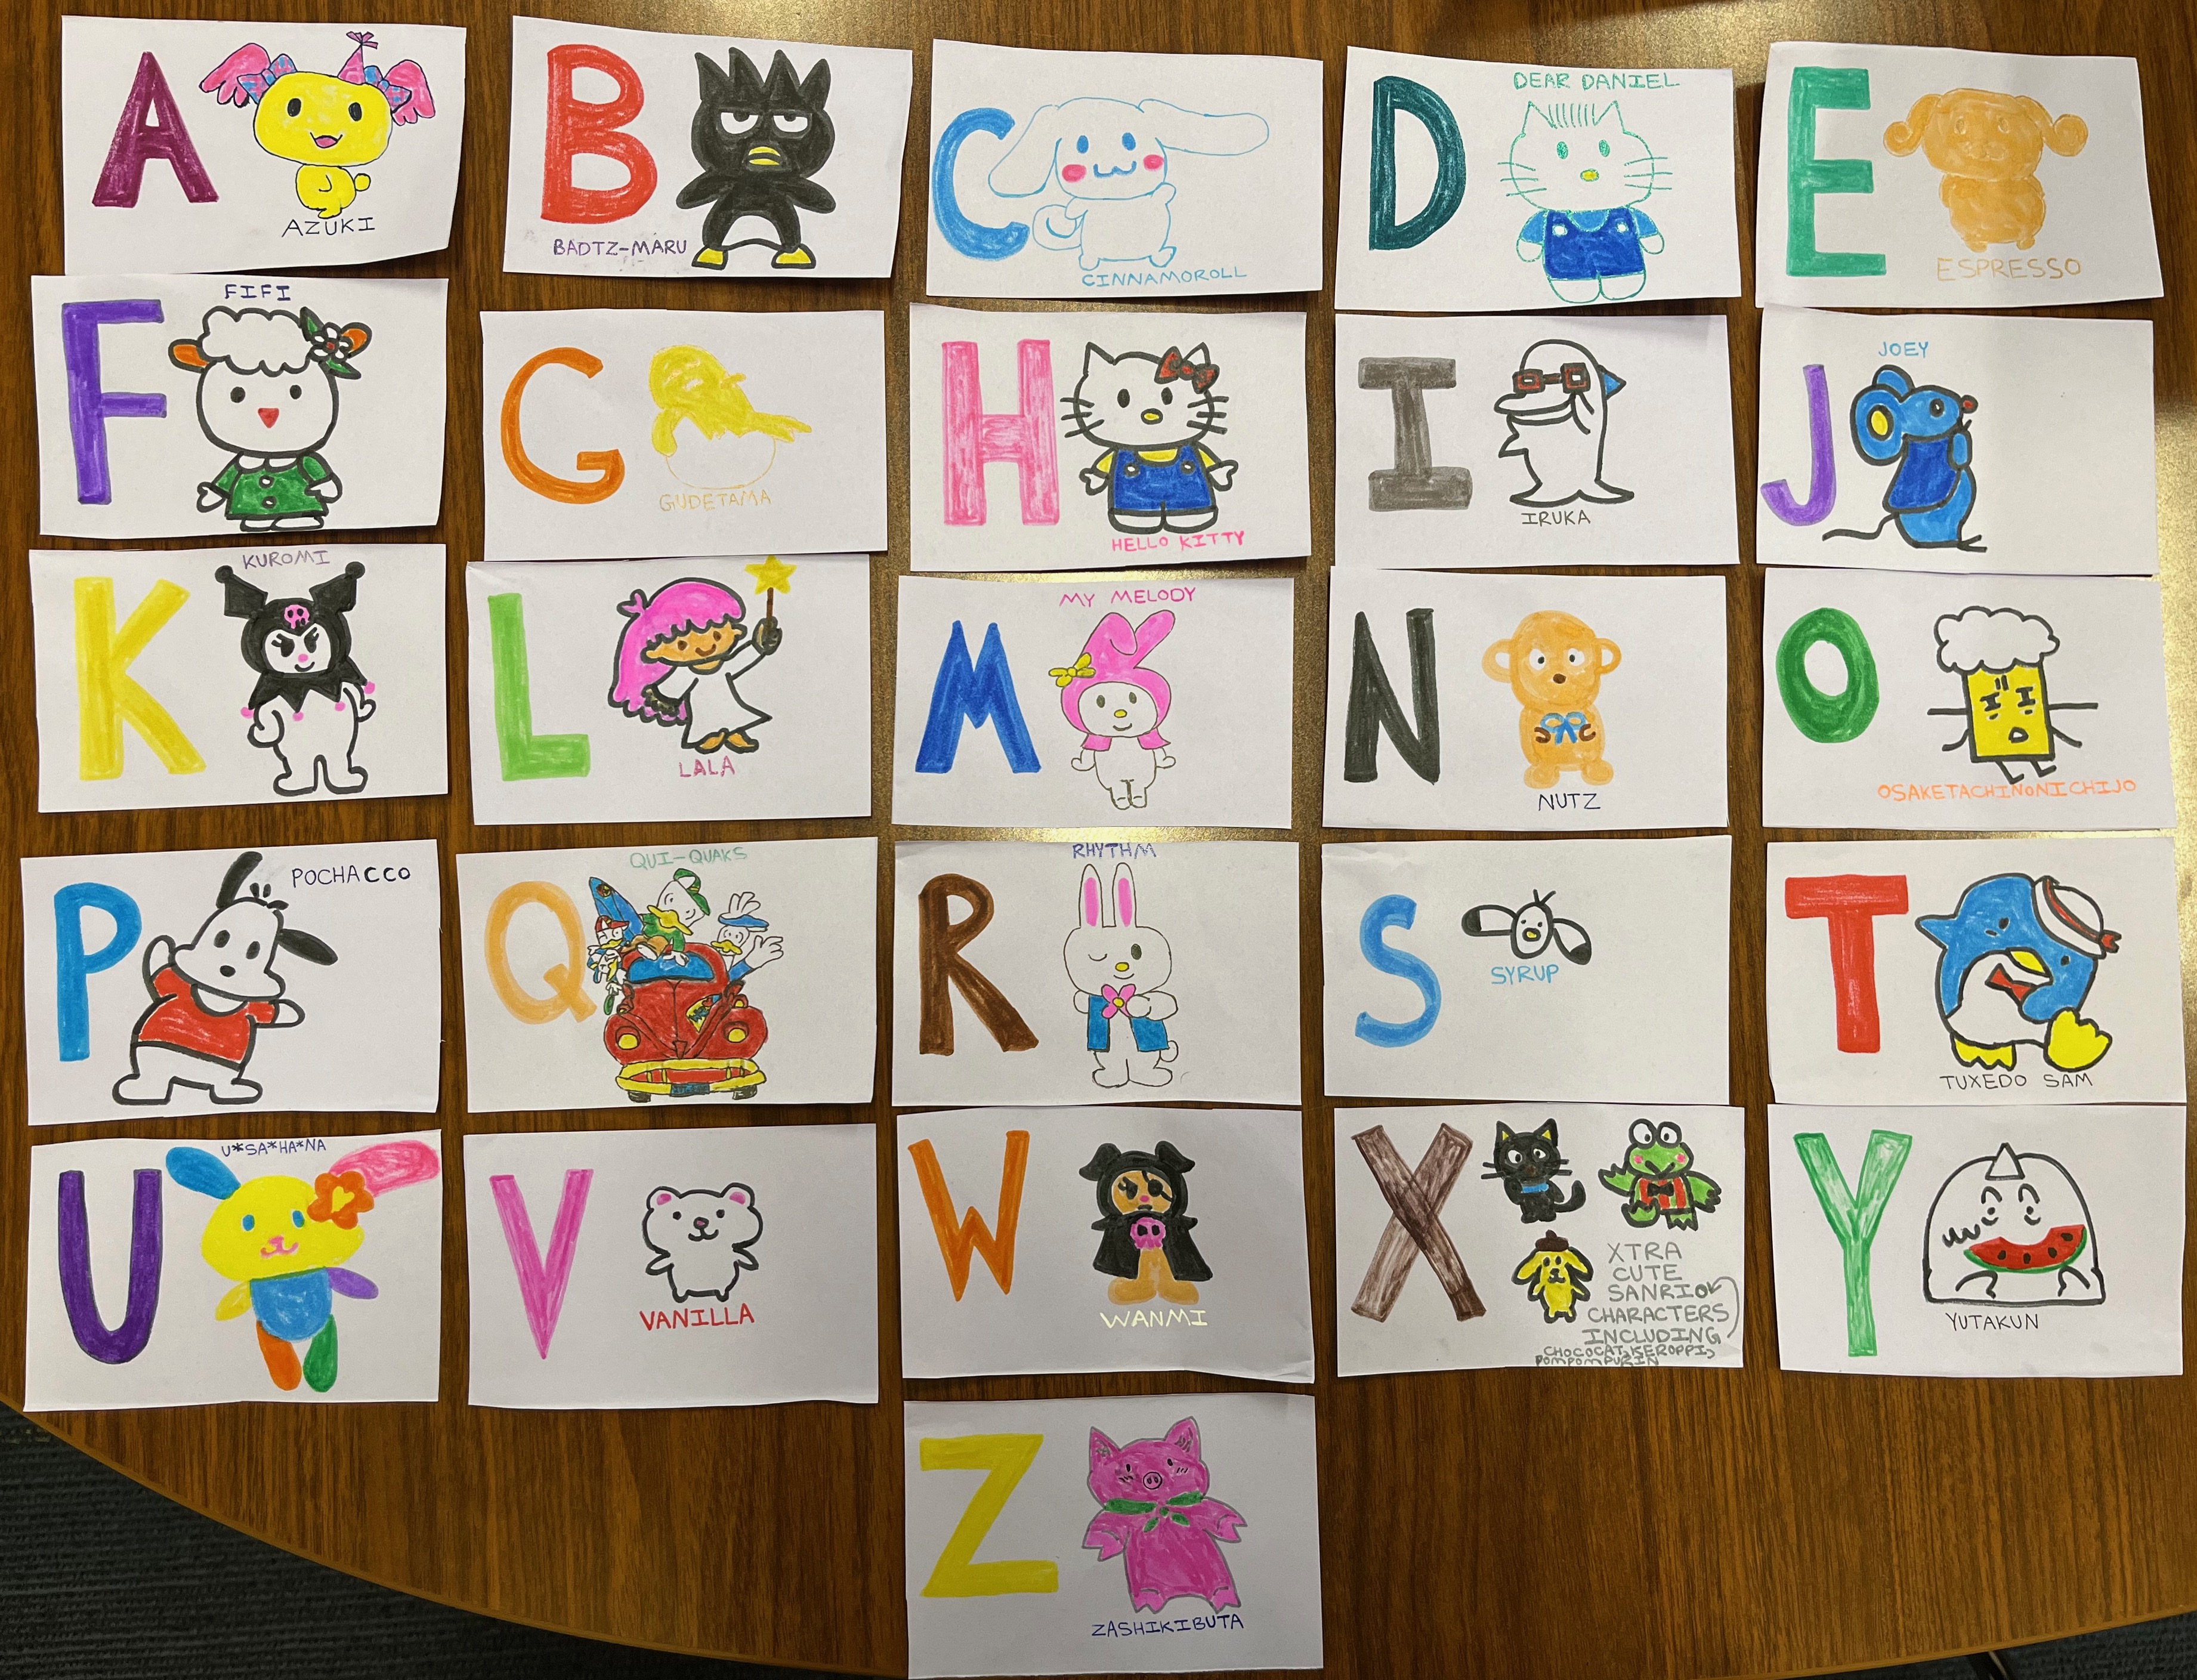 A
AZUKI
B
BADTZ-MARU
C
CINNAMOROLL
D
DEAR DANIEL
E
ESPRESSO
F
FIFI
G
GUDETAMA
H
HELLO KITTY
I
IRUKA
J
JOEY
K
KUROMI
L
LALA
M
MY MELODY
N
NUTZ
O
OSAKETACHINONICHIJO
P
POCHACCO
Q
QUI-QUAKS
R
RHYTHM
S
SYRUP
T
TUXEDO SAM
U
U*SA*HA*NA
V
VANILLA
W
WANMI
X
XTRA
CUTE
SANRIO
CHARACTERS
INCLUDING
CHOCOCAT, KEROPPI,
POMPOMPURIN
Y
YUTAKUN
Z
ZASHIKIBUTA